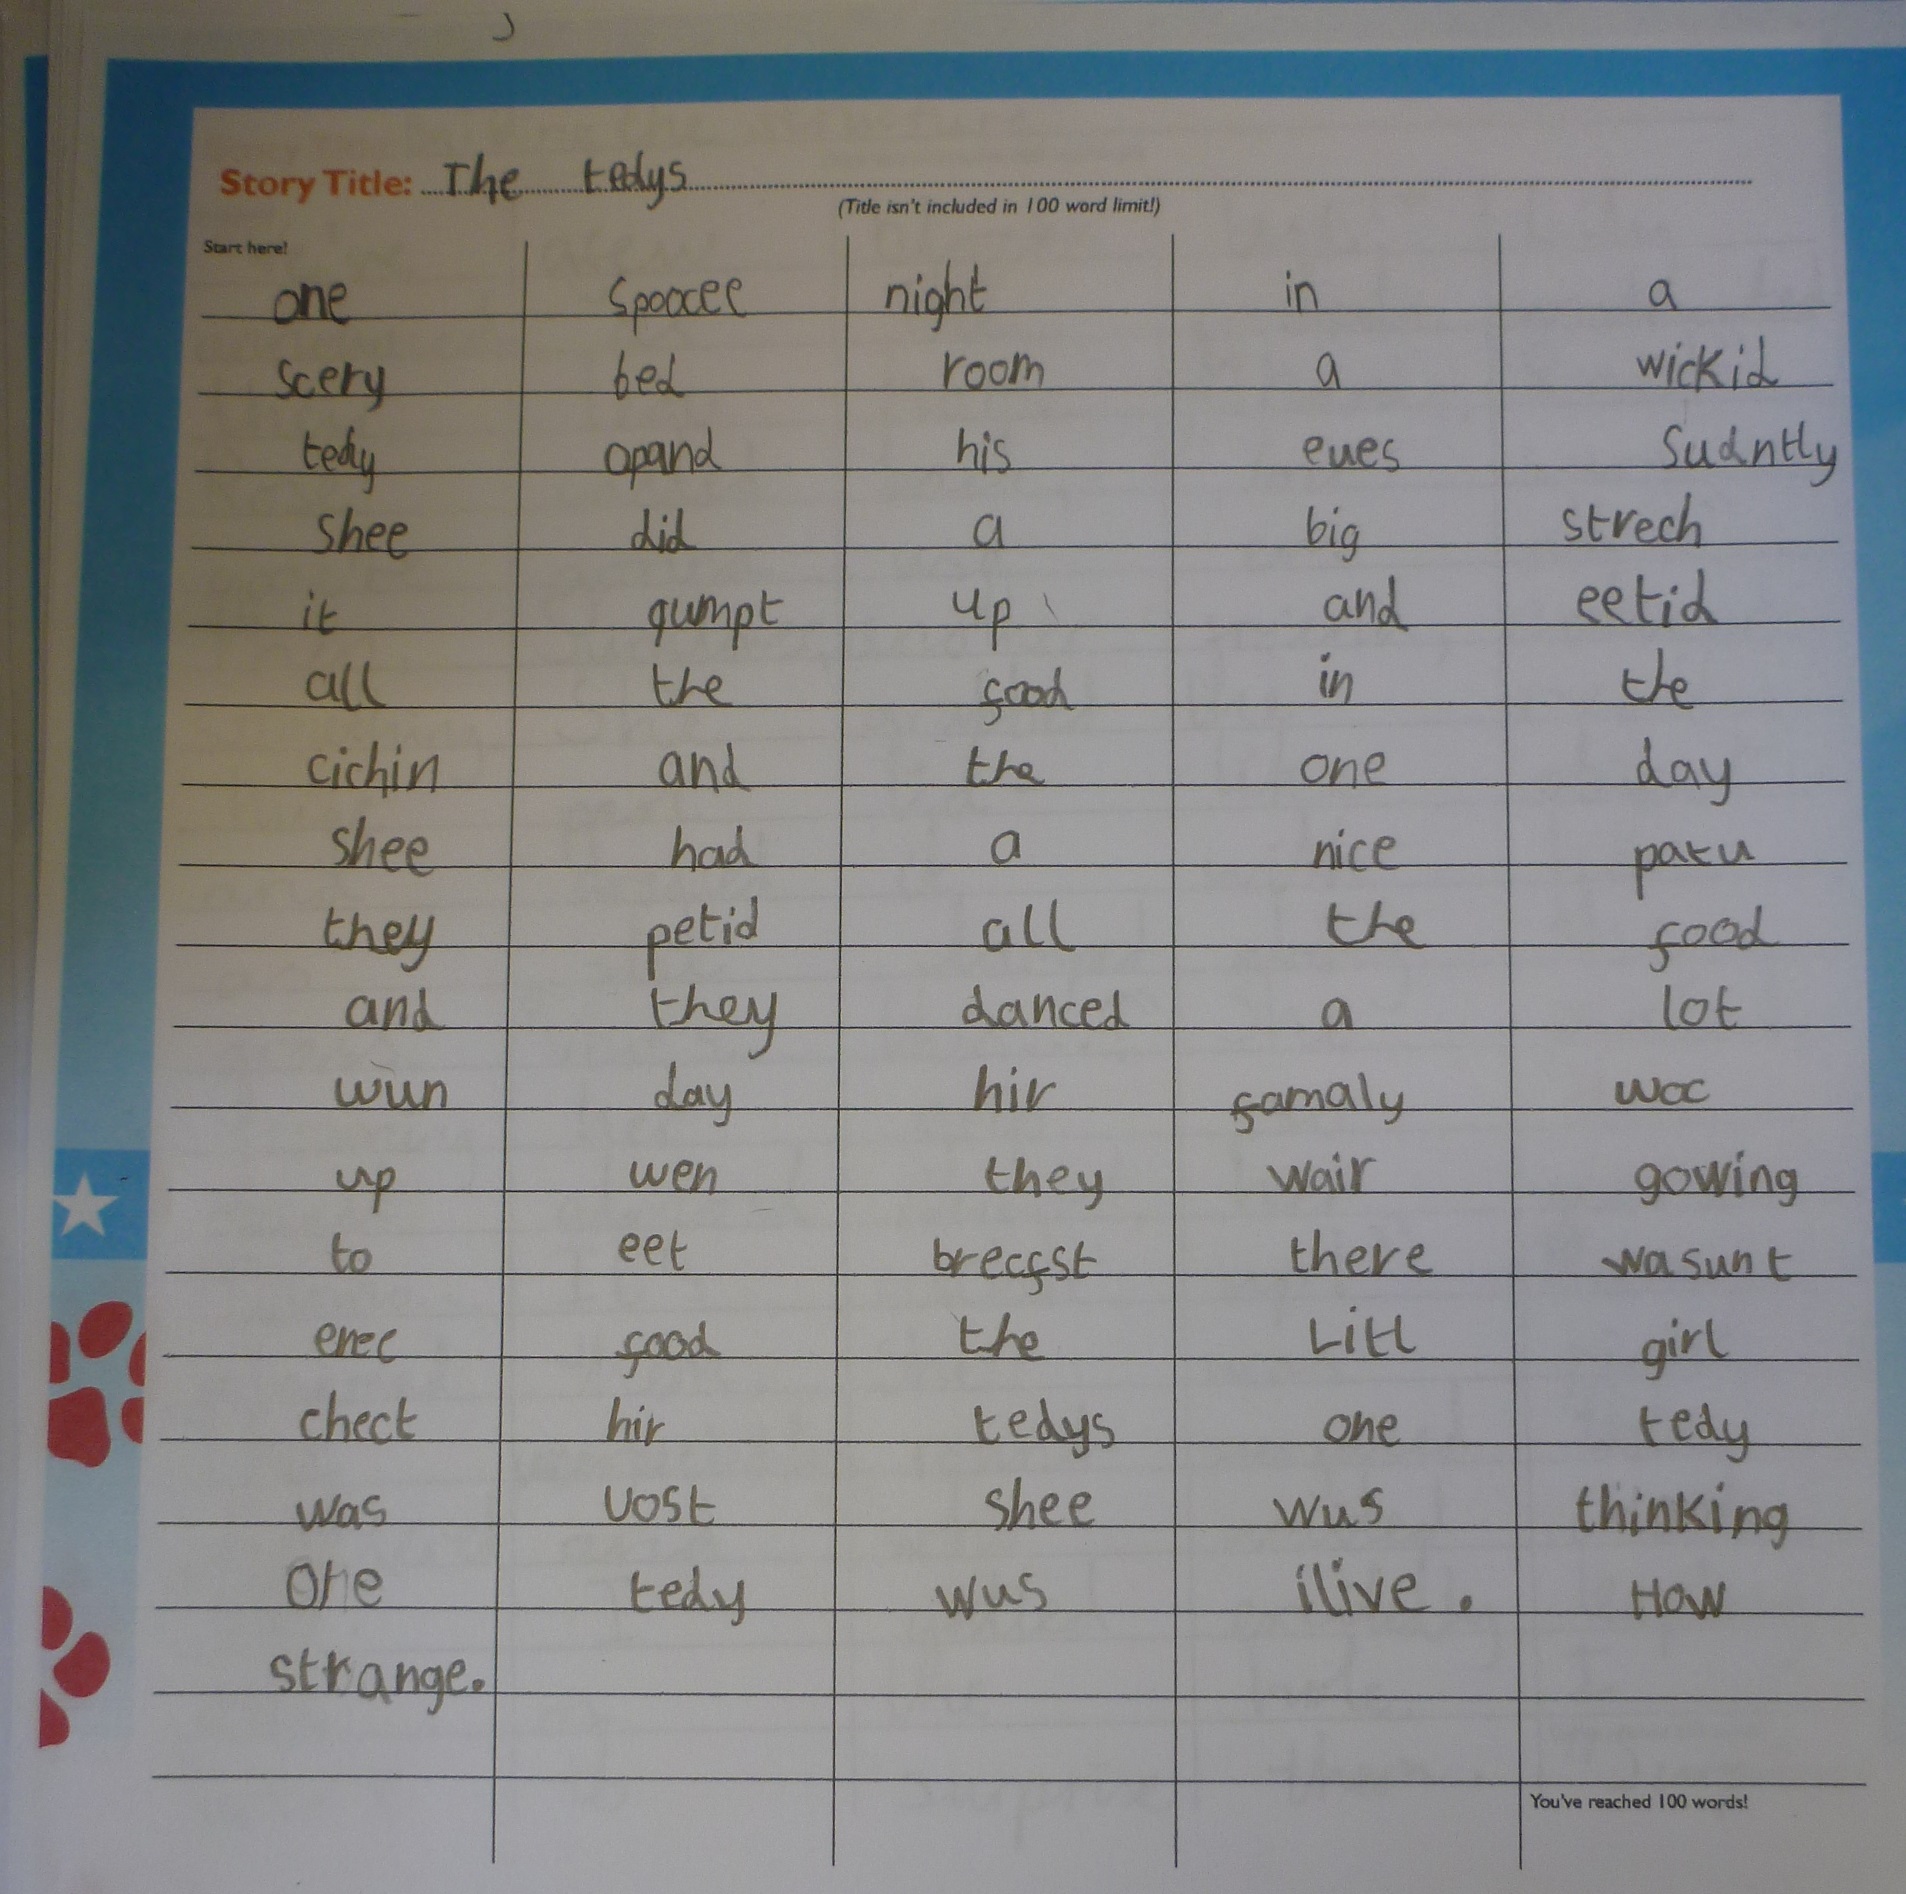 Story Title: The tedys
(Title isn't included in 100 word limit!)
Start here!
one spoocee night in a
scery bed room a wickid
tedy opand his eues Sudntly
shee did a big strech
it gumpt up and eetid
all the food in the
cichin and the one day
shee had a nice patu
they petid all the food
and they danced a lot
wun day hir famaly woc
up wen they wair gowing
to eet brecfst there wasunt
enec food the Littl girl
chect hir tedys one tedy
was vost shee wus thinking
one tedy wus ilive. How
strange.
You've reached 100 words!